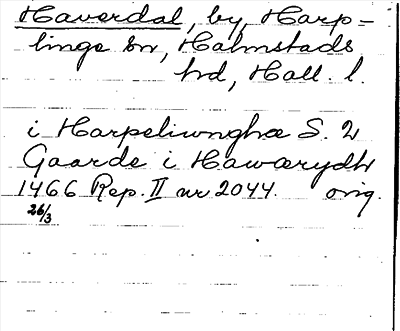 Haverdal, by, Harp-
linge sn, Halmstads
hd, Hall. l.
i Harpeliwnghæ S. 2
Gaarde i Hawærydh
1466 Rep. II nr 2044. orig.
26/3